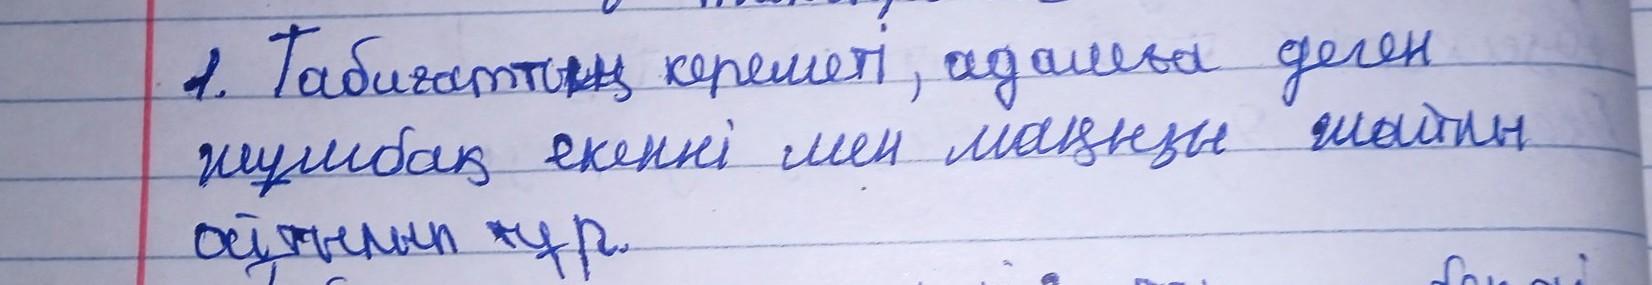 1. Табиғаттың кереметі, адамға деген
жұмбақ екенні мен маңызы
тұр.